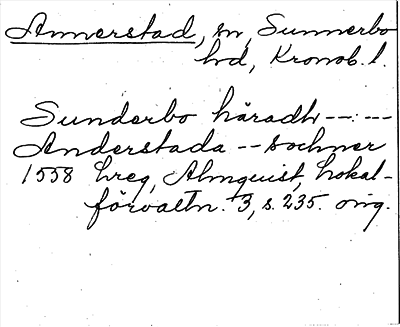 Annerstad, sn, Sunnerbo
hd, Kronob. l.
Sunderbo häradh --:--
Anderstada -- sochner
1558 hreg, Almquist, Lokal-
förvaltn. 3, s. 235. orig.